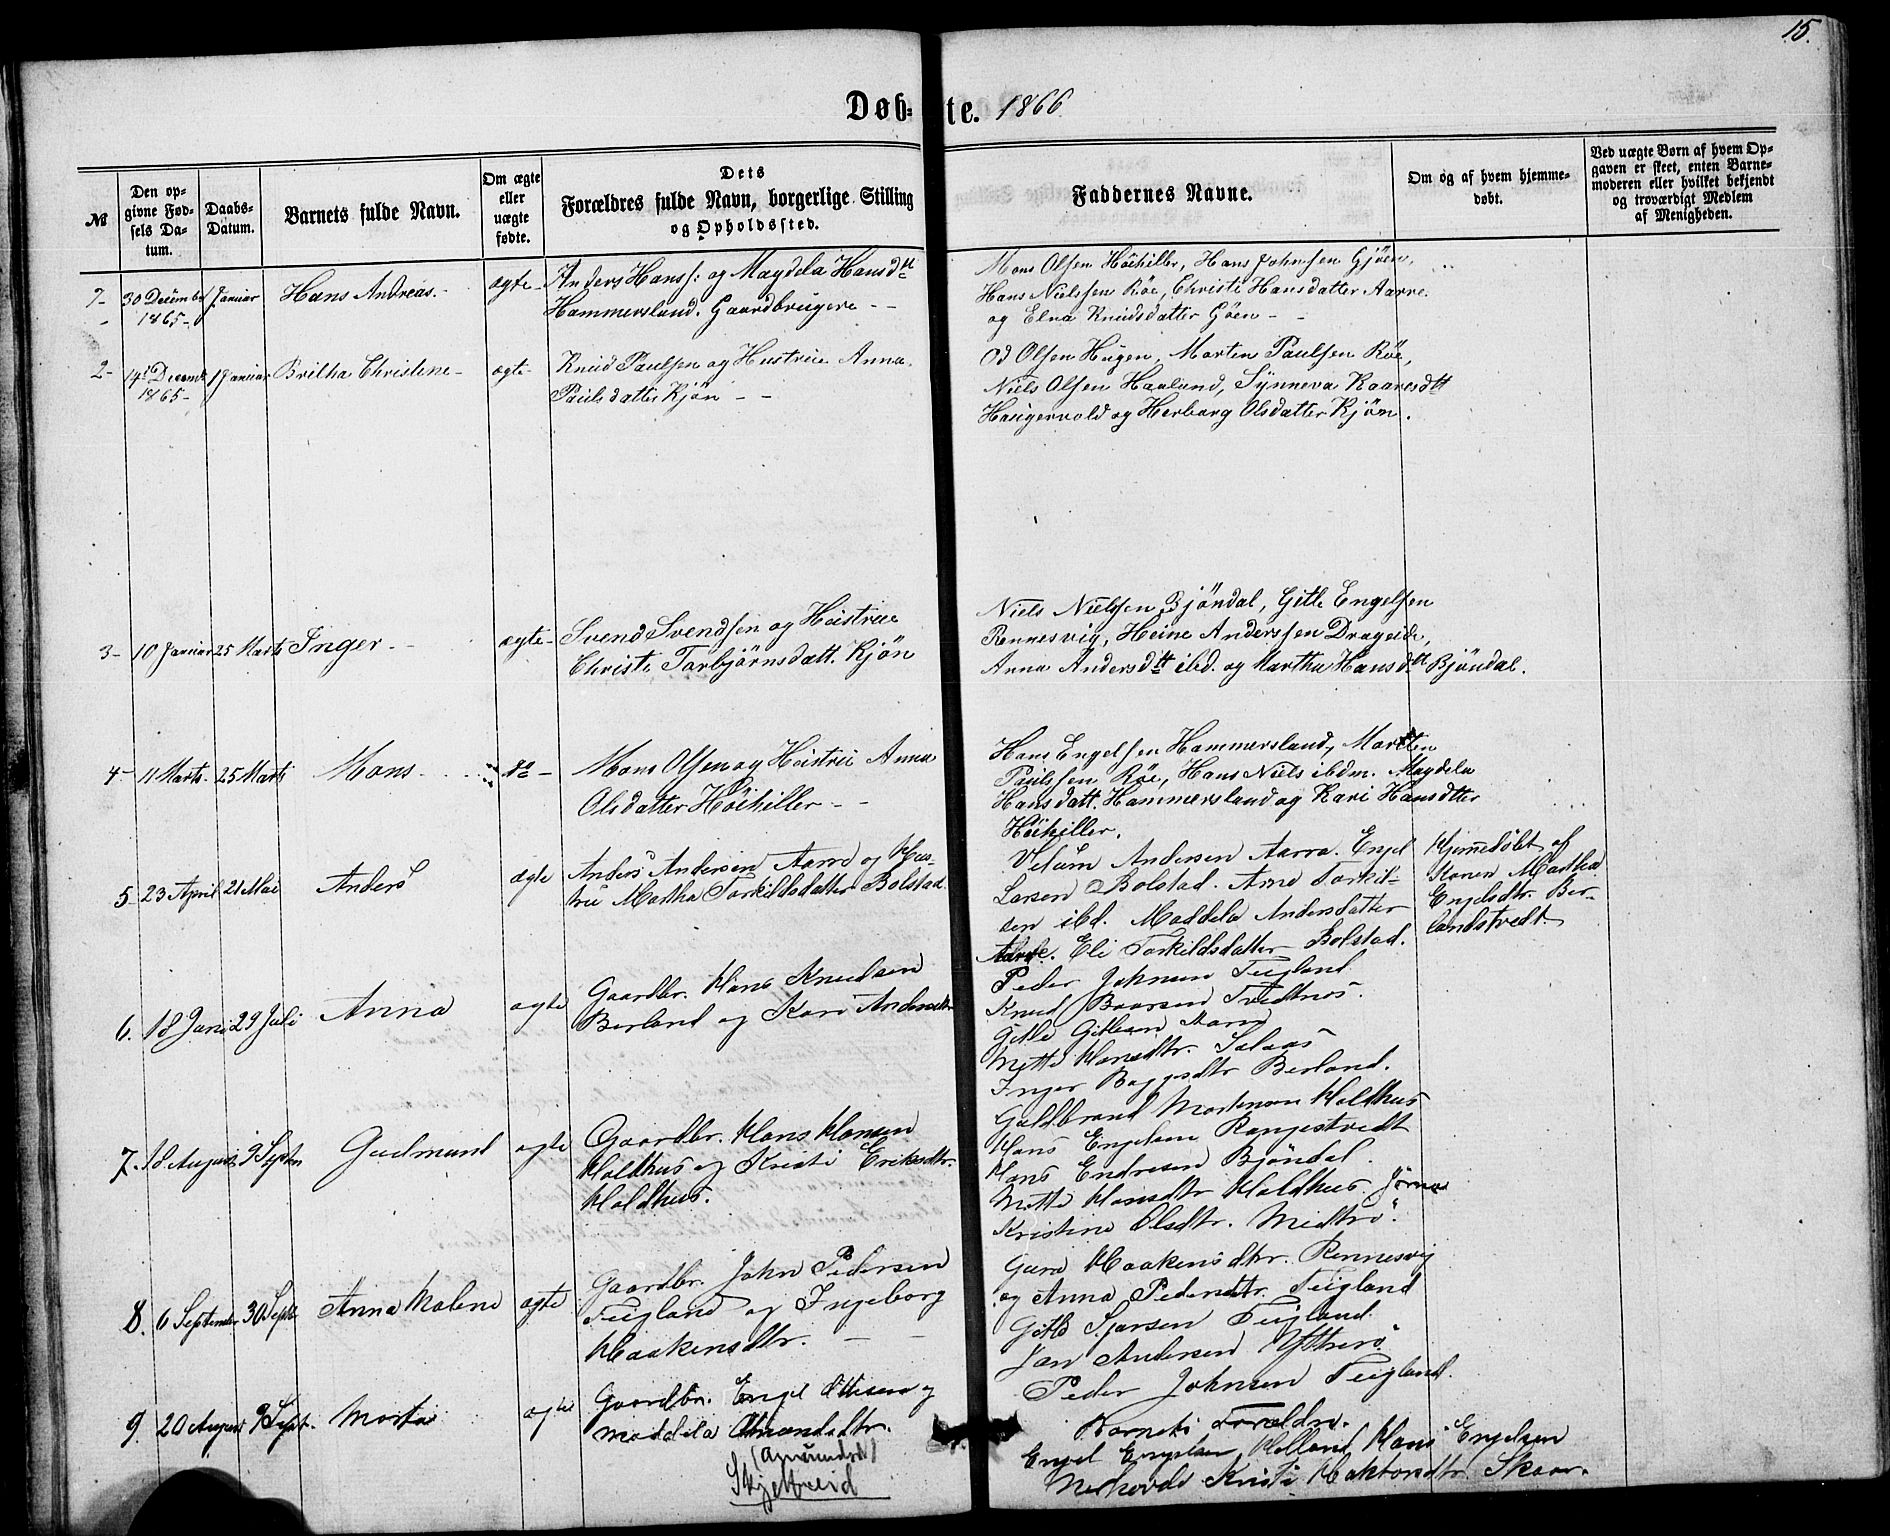 15.
Døb-te. 1866
№
Den opgivne Fødsels Datum.
Daabs-Datum.
Barnets fulde Navn.
Om ægte eller uægte fødte.
Dets Forældres fulde Navn, borgerlige Stilling og Opholdssted.
Faddernes Navne.
Om og af hvem hjemmedøbt.
Ved uægte Børn af hvem Opgaven er skeet, enten Barnemoderen eller hvilket bekjendt og troværdigt Medlem af Menigheden.
30 Decembr 1865 1 Januar Hans Andreas. ægte
Anders Hanss: og Magdela Hansdtt
Hammersland. Gaardbrugere
Mons Olsen Höihiller, Hans Johnsen Gjöen,
Hans Nielssen Röe, Christi Hansdatter Aarre
og Elna Knudsdatter Göen
2 14d Decemb 1865 1 Januar Britha Christene ægte
Knud Paulsen og Hustrue Anna
Paulsdatter Kjön
Od Olsen Hugen, Morten Paulsen Röe,
Niels Olsen Haaland, Synneva Kaaresdtt
Haugervold og Herborg Olsdatter Kjøn.
3 10 Januar 25 Marts Inger ægte
Svend Svendsen og Hustrue
Christi Torbjørnsdatt. Kjön
Niels Nielssen Bjöndal, Gitle Engelsen
Rennesvig, Heine Anderssen Drageide,
Anna Andersdtt ibd. og Martha Hansdtt Bjöndal.
4 11 Marts 25 Marts Mons do
Mons Olsen og Hustrue Anna
Olsdatter Höihiller
Hans Engelsen Hammersland, Morten
Paulssen Röe, Hans Niels ibdm. Magdela
Hansdatt. Hammersland og Kari Hansdtter
Höihiller.
5 23 April 21 Mai Anders ægte
Anders Andersen Aarre og Hustrue Martha Torkildsdatter Bolstad
Andersen Aarra. Engel
Larsen Bolstad. Arne Torkilsen ibd. Maddela Andersdatter
Aarre. Eli Torkildsdatter Bolstad.
Hjemmedöbt af
Konen Martha
Engelsdtr. Berlandstvedt.
6. 18 Juni 29 Juli Anna ægte
Gaardbr. Hans Knudsen
Berland og Kari Andersdtr
Peder Johnsen Teigland
Knud Baarsen Tvedtnes.
Gitle Gitlesen
Mette Hansdtr. Salaas
Inger Baggesdtr Berland.
7. 18 August 9 Septbr Gudmund ægte
Gaardbr. Hans Hansen
Holdhus og Kristi Eriksdtr.
Holdhus.
Guldbrand Mortensen Holdhus
Hans Engelsen Rangestvedt
Hans Endresen Bjöndal.
Mette Hansdtr Holdhus.
Kristine Olsdtr.
8. 6 September 30 Septb Anna Malene ægte
Gaardbr. John Pedersen
Teigland og Ingeborg
Haakensdtr.
Guro Haakensdtr. Rennesvig
og Anna Pedersdtr. Teigland
Teigland.
Jan Andersen
Peder Johnsen Teigland.
9. 20 August 9 Sept. ægte
Gaardbr. Engel Ottesen og
Maddela Amundsdtr.
(Amundsdtr)
Skjelbreid
Barnets Forældre.
Engel Engelsen Holland, Hans Engelsen
Kristi Skaar.